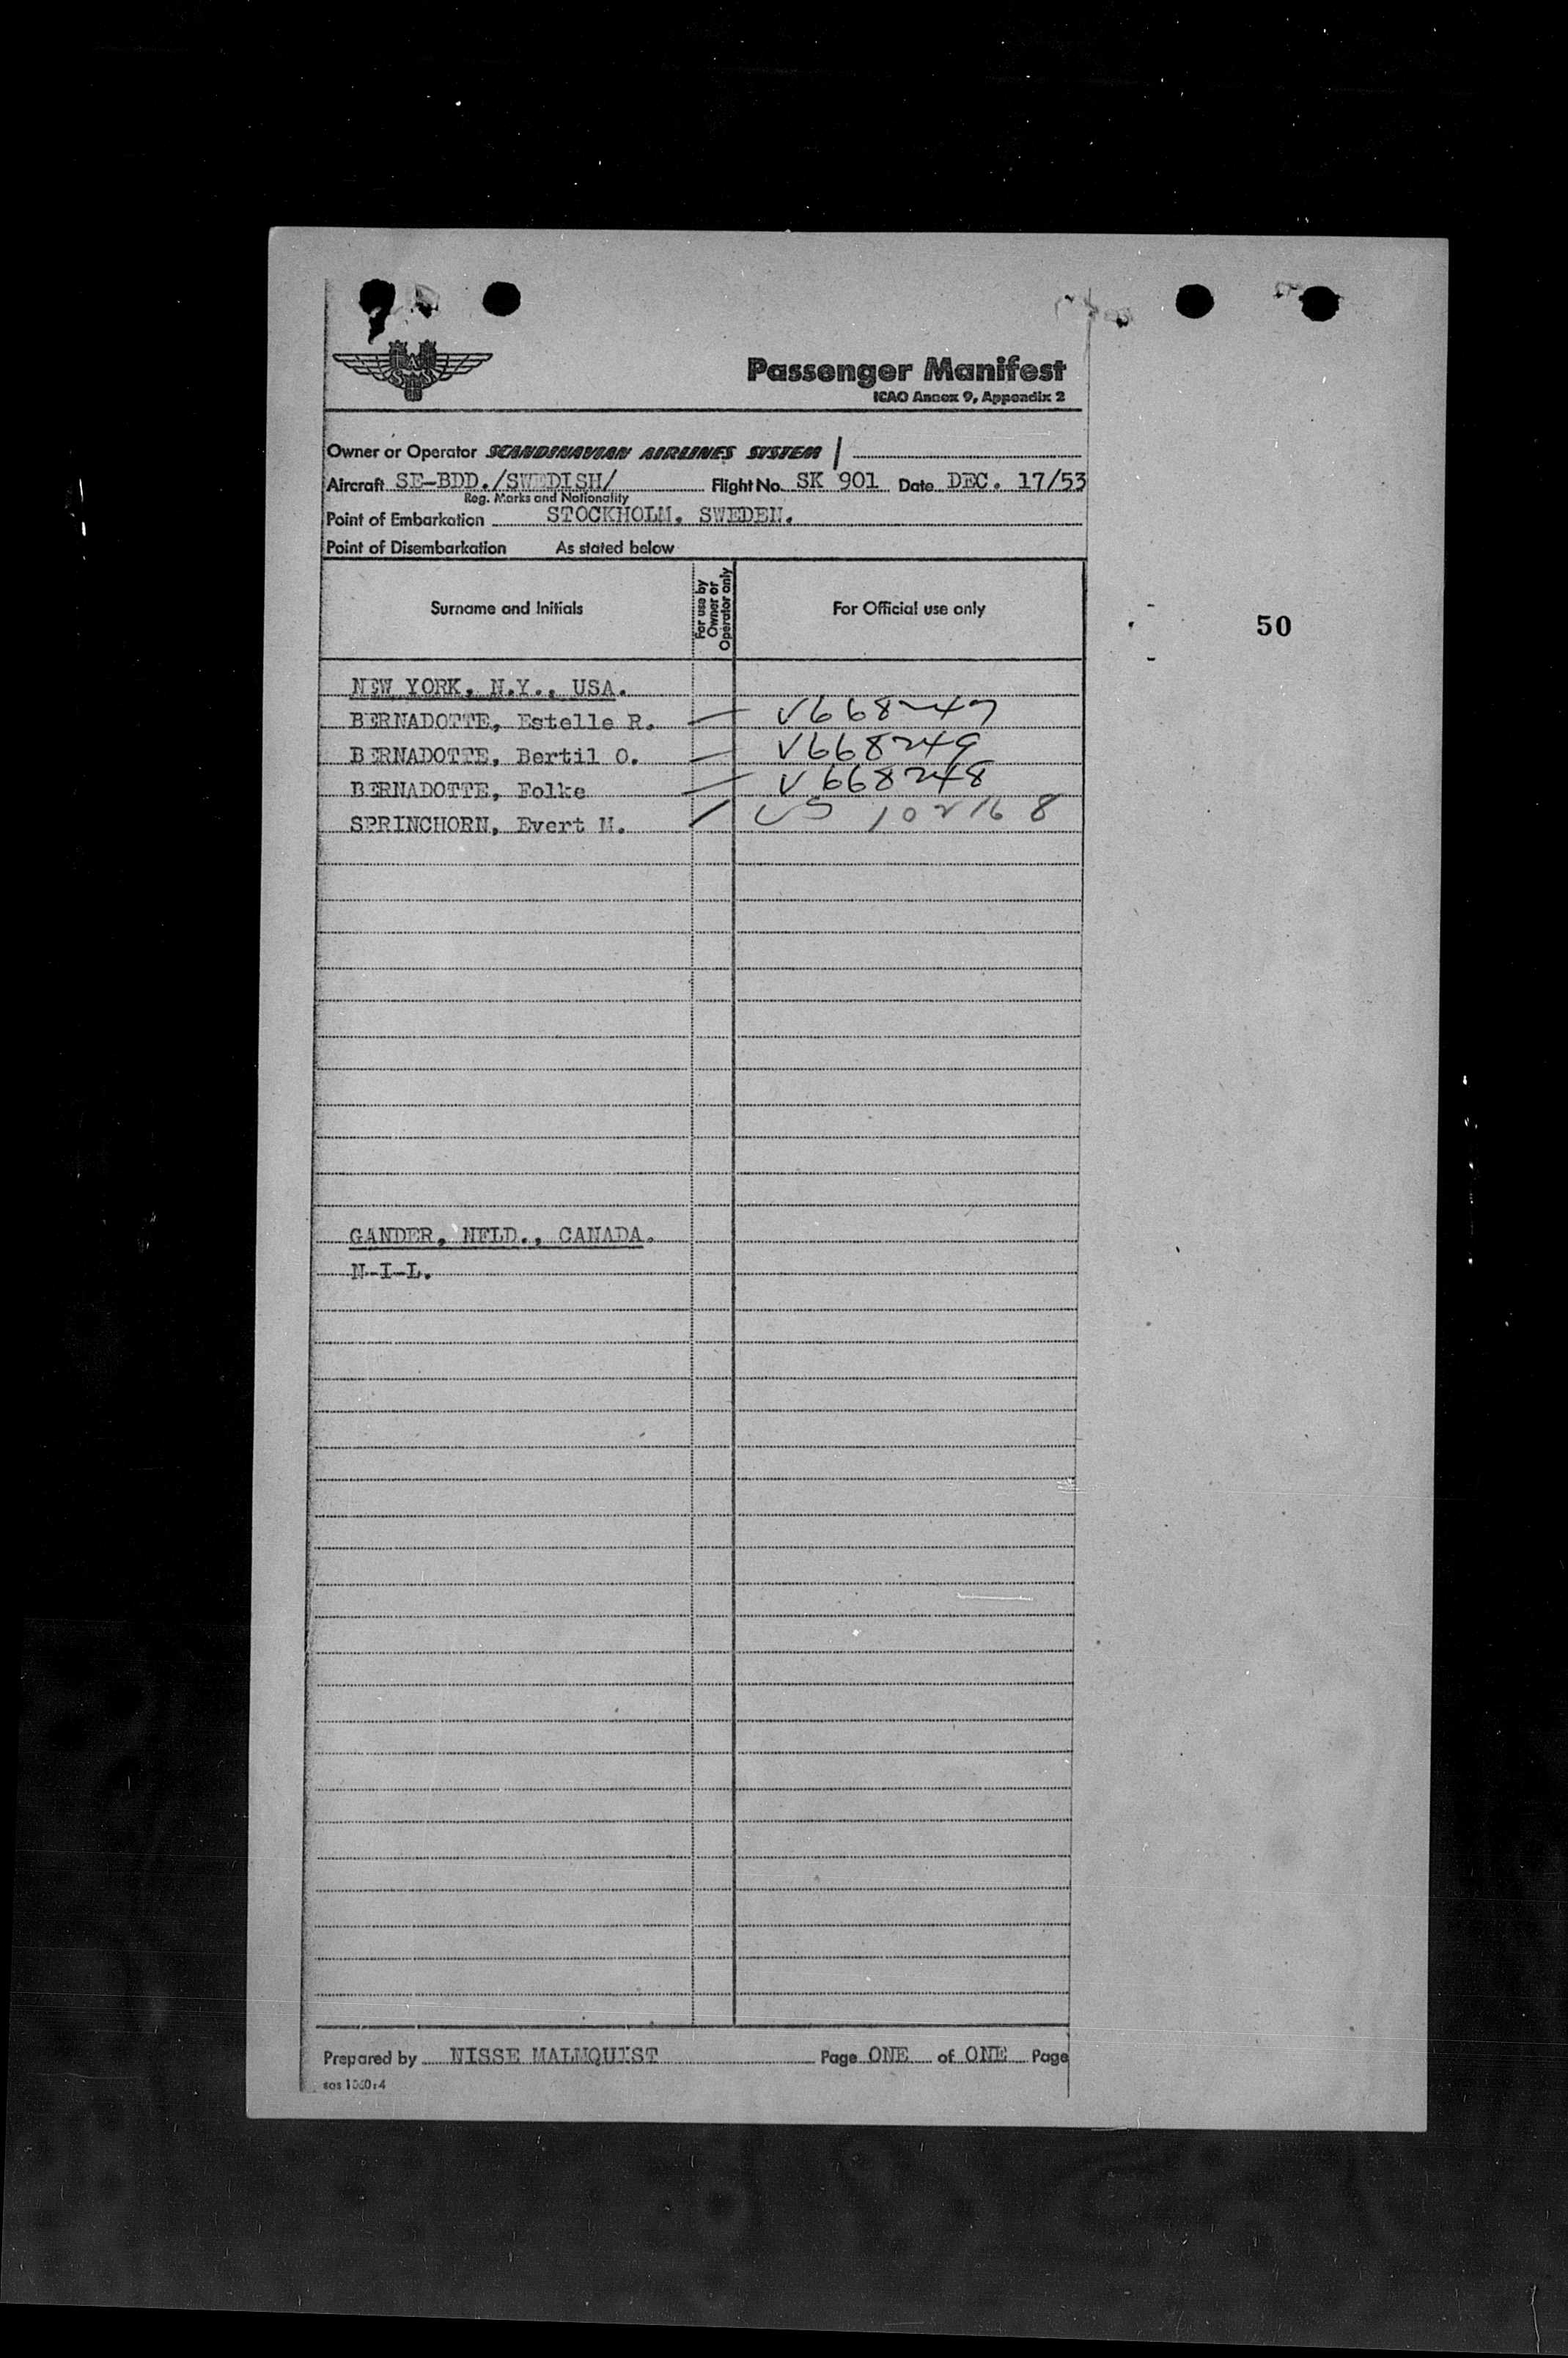 Passenger Manifest
ICAO Annex 9, Appendix 2
Owner or Operator SCANDINAVIAN AIRLINES SYSTEM
Aircraft SE-BDD./SWEDISH/ Flight No. SK 901 Date DEC. 17/53
Reg. Marks and Nationality
Point of Embarkation STOCKHOLM, SWEDEN.
Point of Disembarkation As stated below
Surname and Initials
For use by
Owner or
Operator only
For Official use only
50
NEW YORK, N.Y., USA.
BERNADOTTE, Estelle R. V668247
BERNADOTTE, Bertil O. V668249
BERNADOTTE, Folke V 668248
SPRINCHORN, Evert M. US 102168
GANDER, NFLD., CANADA.
N-I-L.
Prepared by NISSE MALMQUIST Page ONE of ONE Page